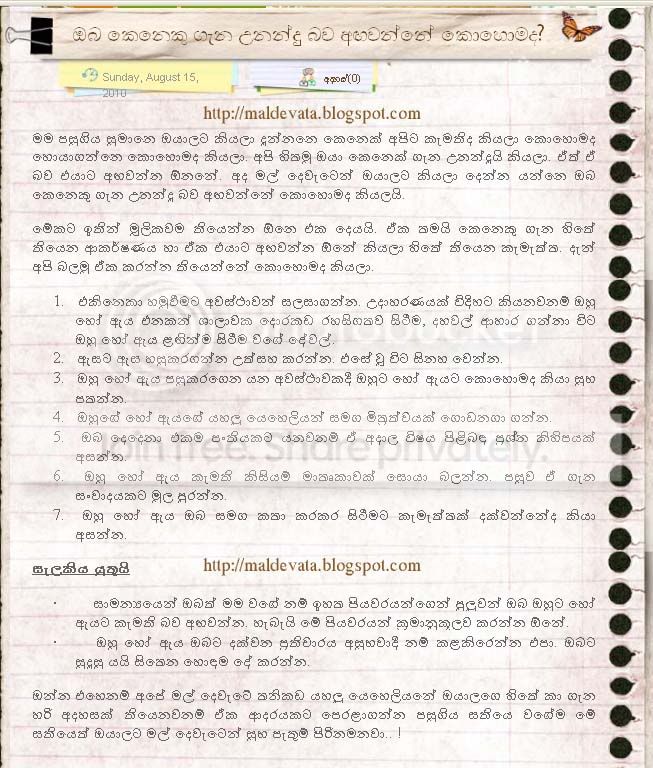 ඔබ කෙනෙකු ගැන උනන්දු බව අඟවන්නේ කොහොමද?
Sunday, August 15,
2010
අදහස්(0)
http://maldevata.blogspot.com
මම පසුගිය සුමානෙ ඔයාලට කියලා දුන්නනෙ කෙනෙක් අපිට කැමතිද කියලා කොහොමද
හොයාගන්නෙ කොහොමද කියලා. අපි හිතමු ඔයා කෙනෙක් ගැන උනන්දුයි කියලා. ඒත් ඒ
බව එයාට අඟවන්න ඕනනේ. අද මල් දෙවැටෙන් ඔයාලට කියලා දෙන්න යන්නෙ ඔබ
කෙනෙකු ගැන උනන්දු බව අඟවන්නේ කොහොමද කියලයි.
මේකට ඉතින් මූලිකවම තියෙන්න ඕනෙ එක දෙයයි. ඒක තමයි කෙනෙකු ගැන හිතේ
තියෙන ආකර්ෂණය හා ඒක එයාට අඟවන්න ඕනේ කියලා හිතේ තියෙන කැමැත්ත. දැන්
අපි බලමු ඒක කරන්න තියෙන්නේ කොහොමද කියලා.
1. එකිනෙකා හමුවීමට අවස්ථාවන් සලසාගන්න. උදාහරණයක් විදිහට කියනවනම් ඔහු
හෝ ඇය එනකන් ශාලාවක දොරකඩ රහසිගතව සිටීම, දහවල් ආහාර ගන්නා විට
ඔහු හෝ ඇය ළඟින්ම සිටීම වගේ දේවල්.
2. ඇසට ඇස හසුකරගන්න උත්සහ කරන්න. එසේ වූ විට සිනහ වෙන්න.
3. ඔහු හෝ ඇය පසුකරගෙන යන අවස්ථාවකදී ඔහුට හෝ ඇයට කොහොමද කියා සුභ
පතන්න.
4. ඔහුගේ හෝ ඇයගේ යහලු යෙහෙලියන් සමග මිත්‍රත්වයක් ගොඩනගා ගන්න.
5. ඔබ දෙදෙනා එකම පංතියකට යනවනම් ඒ අදාල විෂය පිළිබඳ ප්‍රශ්න කිහිපයක්
අසන්න.
6. ඔහු හෝ ඇය කැමති කිසියම් මාතෘකාවක් සොයා බලන්න. පසුව ඒ ගැන
සංවාදයකට මුල පුරන්න.
7. ඔහු හෝ ඇය ඔබ සමග කතා කරකර සිටීමට කැමැත්තක් දක්වන්නේද කියා
අසන්න.
join free. Share privately.
සැලකිය යුතුයි
http://maldevata.blogspot.com
· සාමන්‍යයෙන් ඔබත් මම වගේ නම් ඉහත පියවරයන්ගෙන් පුලුවන් ඔබ ඔහුට හෝ
ඇයට කැමති බව අඟවන්න. හැබැයි මේ පියවරයන් ක්‍රමානුකූලව කරන්න ඕනේ.
· ඔහු හෝ ඇය ඔබට දක්වන ප්‍රතිචාරය අසුභවාදී නම් කළකිරෙන්න එපා. ඔබට
සුදුසු යයි සිතෙන හොඳම දේ කරන්න.
ඔන්න එහෙනම් අපේ මල් දෙවැටේ තනිකඩ යහලු යෙහෙලියනේ ඔයාලගෙ හිතේ කා ගැන
හරි අදහසක් තියෙනවනම් ඒක ආදරයකට පෙරළාගන්න පසුගිය සතියෙ වගේම මේ
සතියෙත් ඔයාලට මල් දෙවැටෙන් සුභ පැතුම් පිරිනමනවා.. !